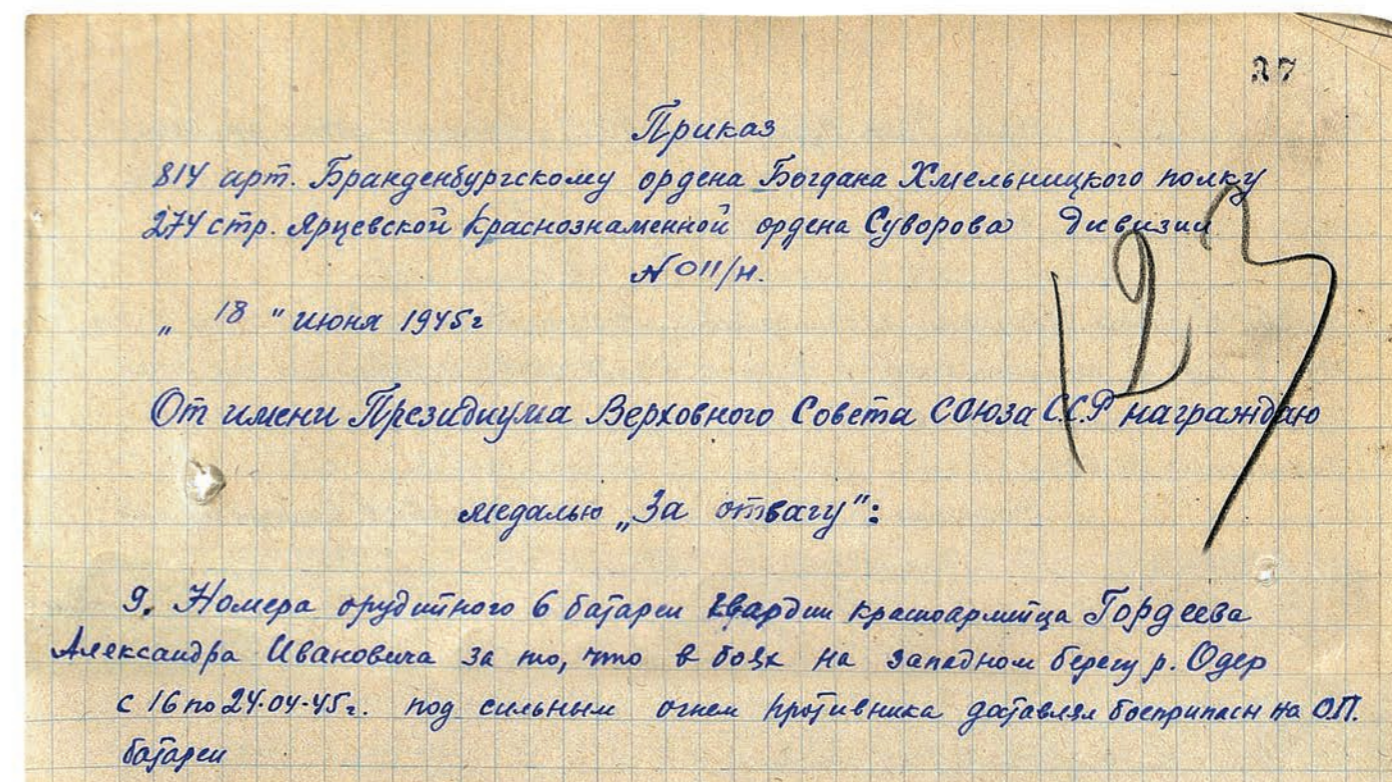 27
Приказ
814 арт. Бранденбургскому ордена Богдана Хмельницкого полку
274 стр. Ярцевской Краснознаменной ордена Суворова дивизии
№ 011/н.
„ 18 " июня 1945г
123
От имени Президиума Верховного Совета Союза С.С.Р награждаю
медалью „За отвагу":
9. Номера орудийного 6 батареи гвардии красноармейца Гордеева
Александра Ивановича за то, что в боях на западном берегу р. Одер
с 16 по 24.04.45г. под сильным огнем противника доставлял боеприпасы на О.П.
батареи